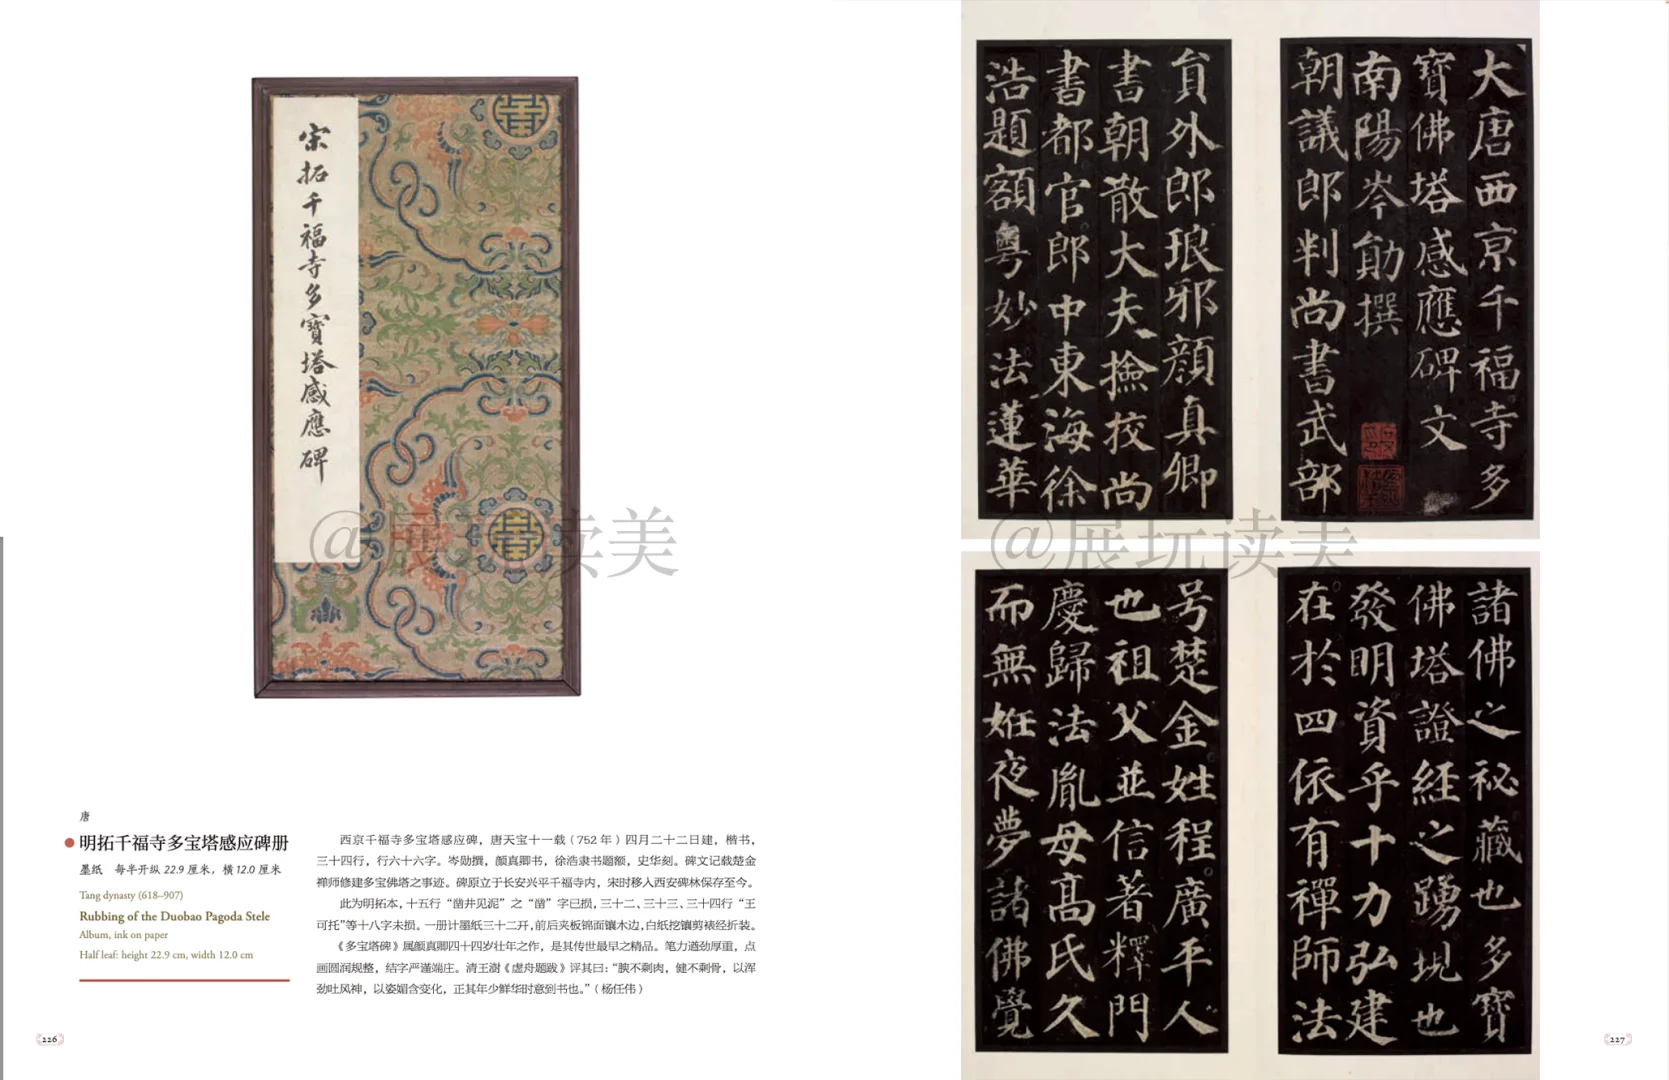 宋拓千福寺多寶塔感應碑
唐
明拓千福寺多宝塔感应碑册
墨纸 每半开纵 22.9 厘米，横 12.0 厘米
Tang dynasty (618–907)
Rubbing of the Duobao Pagoda Stele
Album, ink on paper
Half leaf: height 22.9 cm, width 12.0 cm
西京千福寺多宝塔感应碑，唐天宝十一载（752 年）四月二十二日建，楷书，
三十四行，行六十六字。岑勋撰，颜真卿书，徐浩隶书题额，史华刻。碑文记载楚金
禅师修建多宝佛塔之事迹。碑原立于长安兴平千福寺内，宋时移入西安碑林保存至今。
此为明拓本，十五行“凿井见泥”之“凿”字已损，三十二、三十三、三十四行“王
可托”等十八字未损。一册计墨纸三十二开，前后夹板锦面镶木边，白纸挖镶剪裱经折装。
《多宝塔碑》属颜真卿四十四岁壮年之作，是其传世最早之精品。笔力遒劲厚重，点
画圆润规整，结字严谨端庄。清王澍《虚舟题跋》评其曰：“腴不剩肉，健不剩骨，以浑
劲吐风神，以姿媚含变化，正其年少鲜华时意到书也。”（杨任伟）
226
大唐西京千福寺多
寶佛塔感應碑文
南陽岑勛撰
朝議郎判尚書武部
貟外郎琅邪顔真卿
書朝散大夫撿校尚
書都官郎中東海徐
浩題額粵妙法蓮華
諸佛之祕藏也多寶
佛塔證經之踴現也
發明資乎十力弘建
在於四依有禪師法
号楚金姓程廣平人
也祖父並信著釋門
慶歸法胤母高氏久
而無姙夜夢諸佛覺
227
@展玩读美
@展玩读美